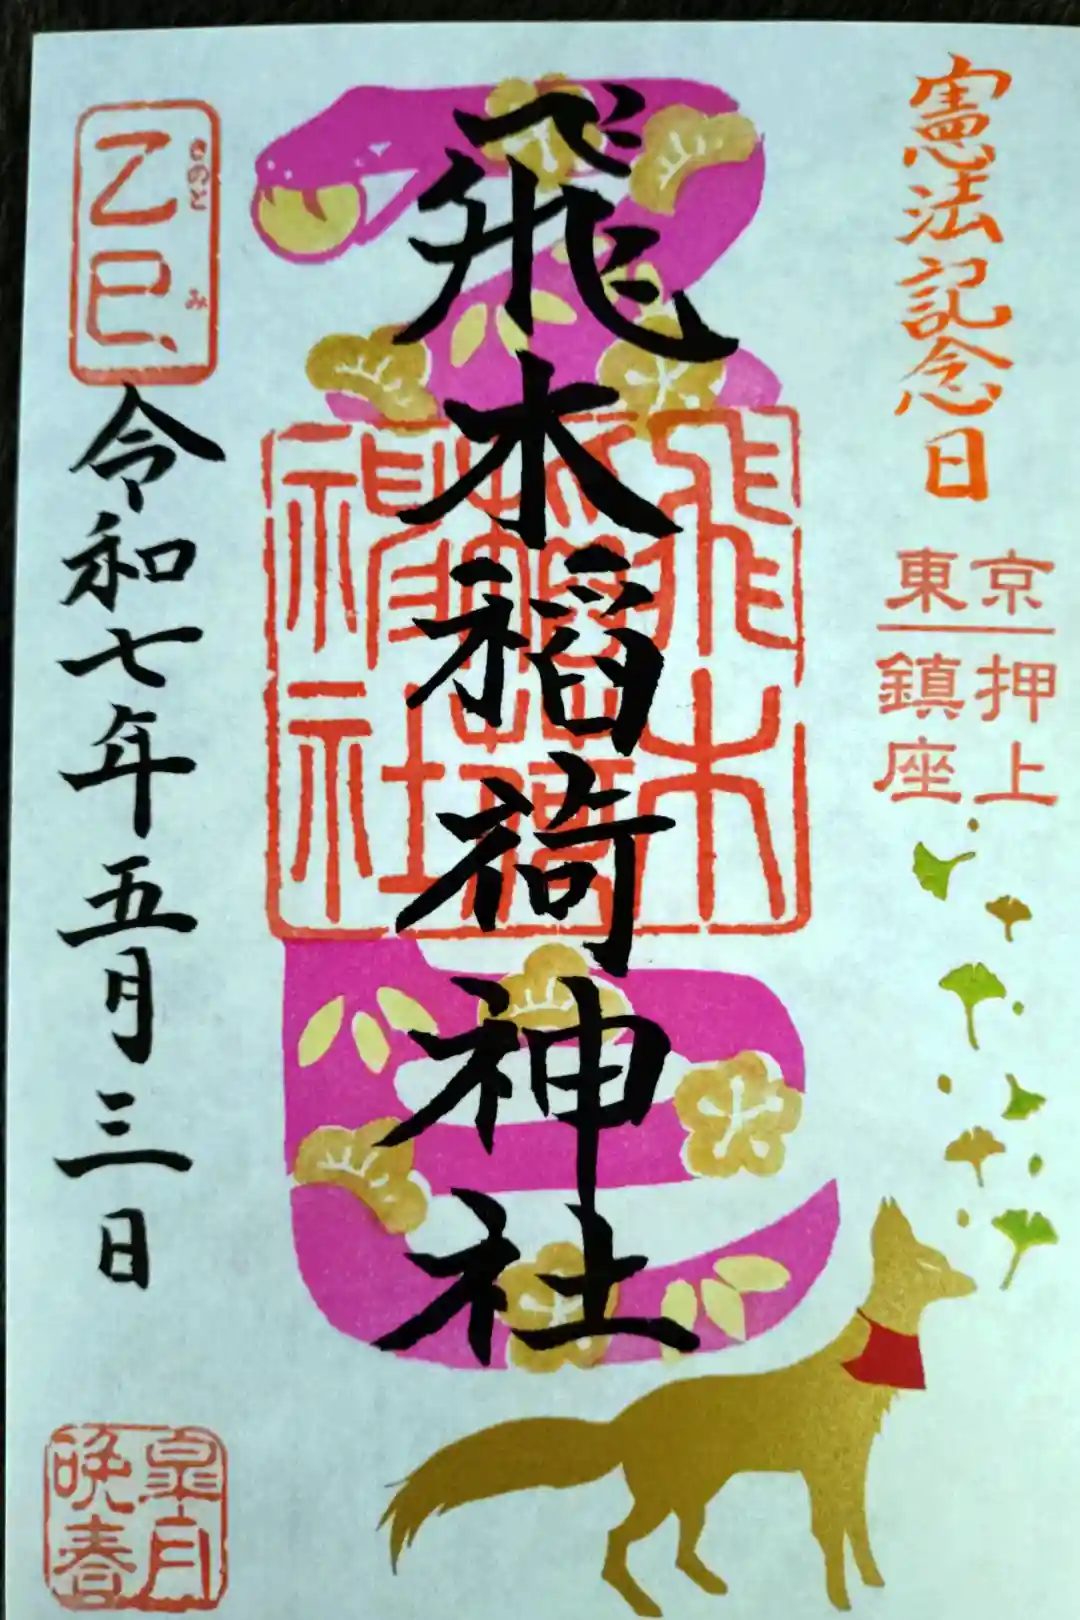 憲法記念日
京押上
東鎮座
飛木稲荷神社
飛木
稲荷
神社
乙巳
きのと
み
令和七年五月三日
皐月
晩春